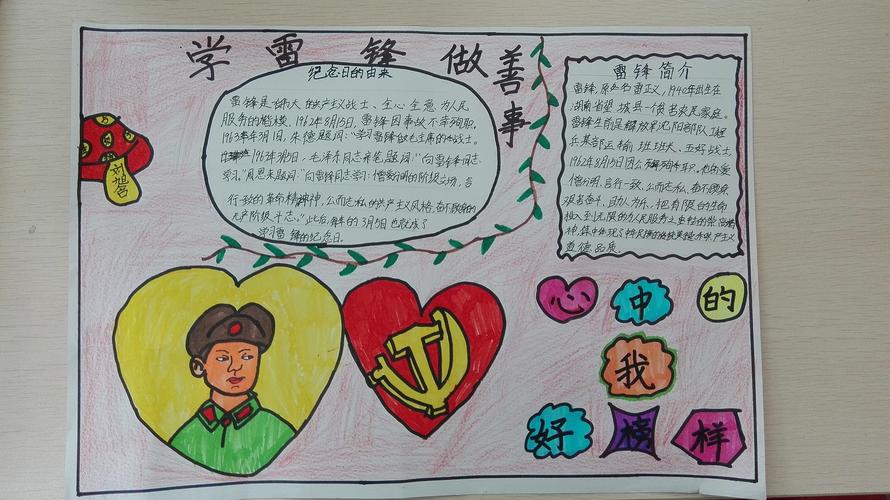 学雷锋做善事
纪念日的由来
雷锋是伟大的共产主义战士、全心全意为人民
服务的楷模。1962年8月15日，雷锋因事故不幸殉职。
1963年3月1日，朱德题词："学习雷锋做毛主席的好战士。
1963年3月5日，毛泽东同志亲笔题词："向雷锋同志
学习。"周恩来题词："向雷锋同志学习：憎爱分明的阶级立场，言
行一致的革命精神，公而忘私的共产主义风格，奋不顾身的
无产阶级斗志。"此后，每年的3月5日也就成了
学习雷锋的纪念日。
雷锋简介
雷锋，原名雷正义，1940年出生在
湖南省望城县一个贫农民家庭。
雷锋生前是解放军沈阳部队工程
兵某部运输班班长、五好战士
1962年8月15日因公殉职。他的爱
憎分明，言行一致，公而忘私，奋不顾身
艰苦奋斗，助人为乐，把有限的生命
投入到无限的为人民服务之中去的崇高精
神，集中体现了中华民族的传统美德和共产主义
道德品质
刘旭含
心中的
我
好榜样